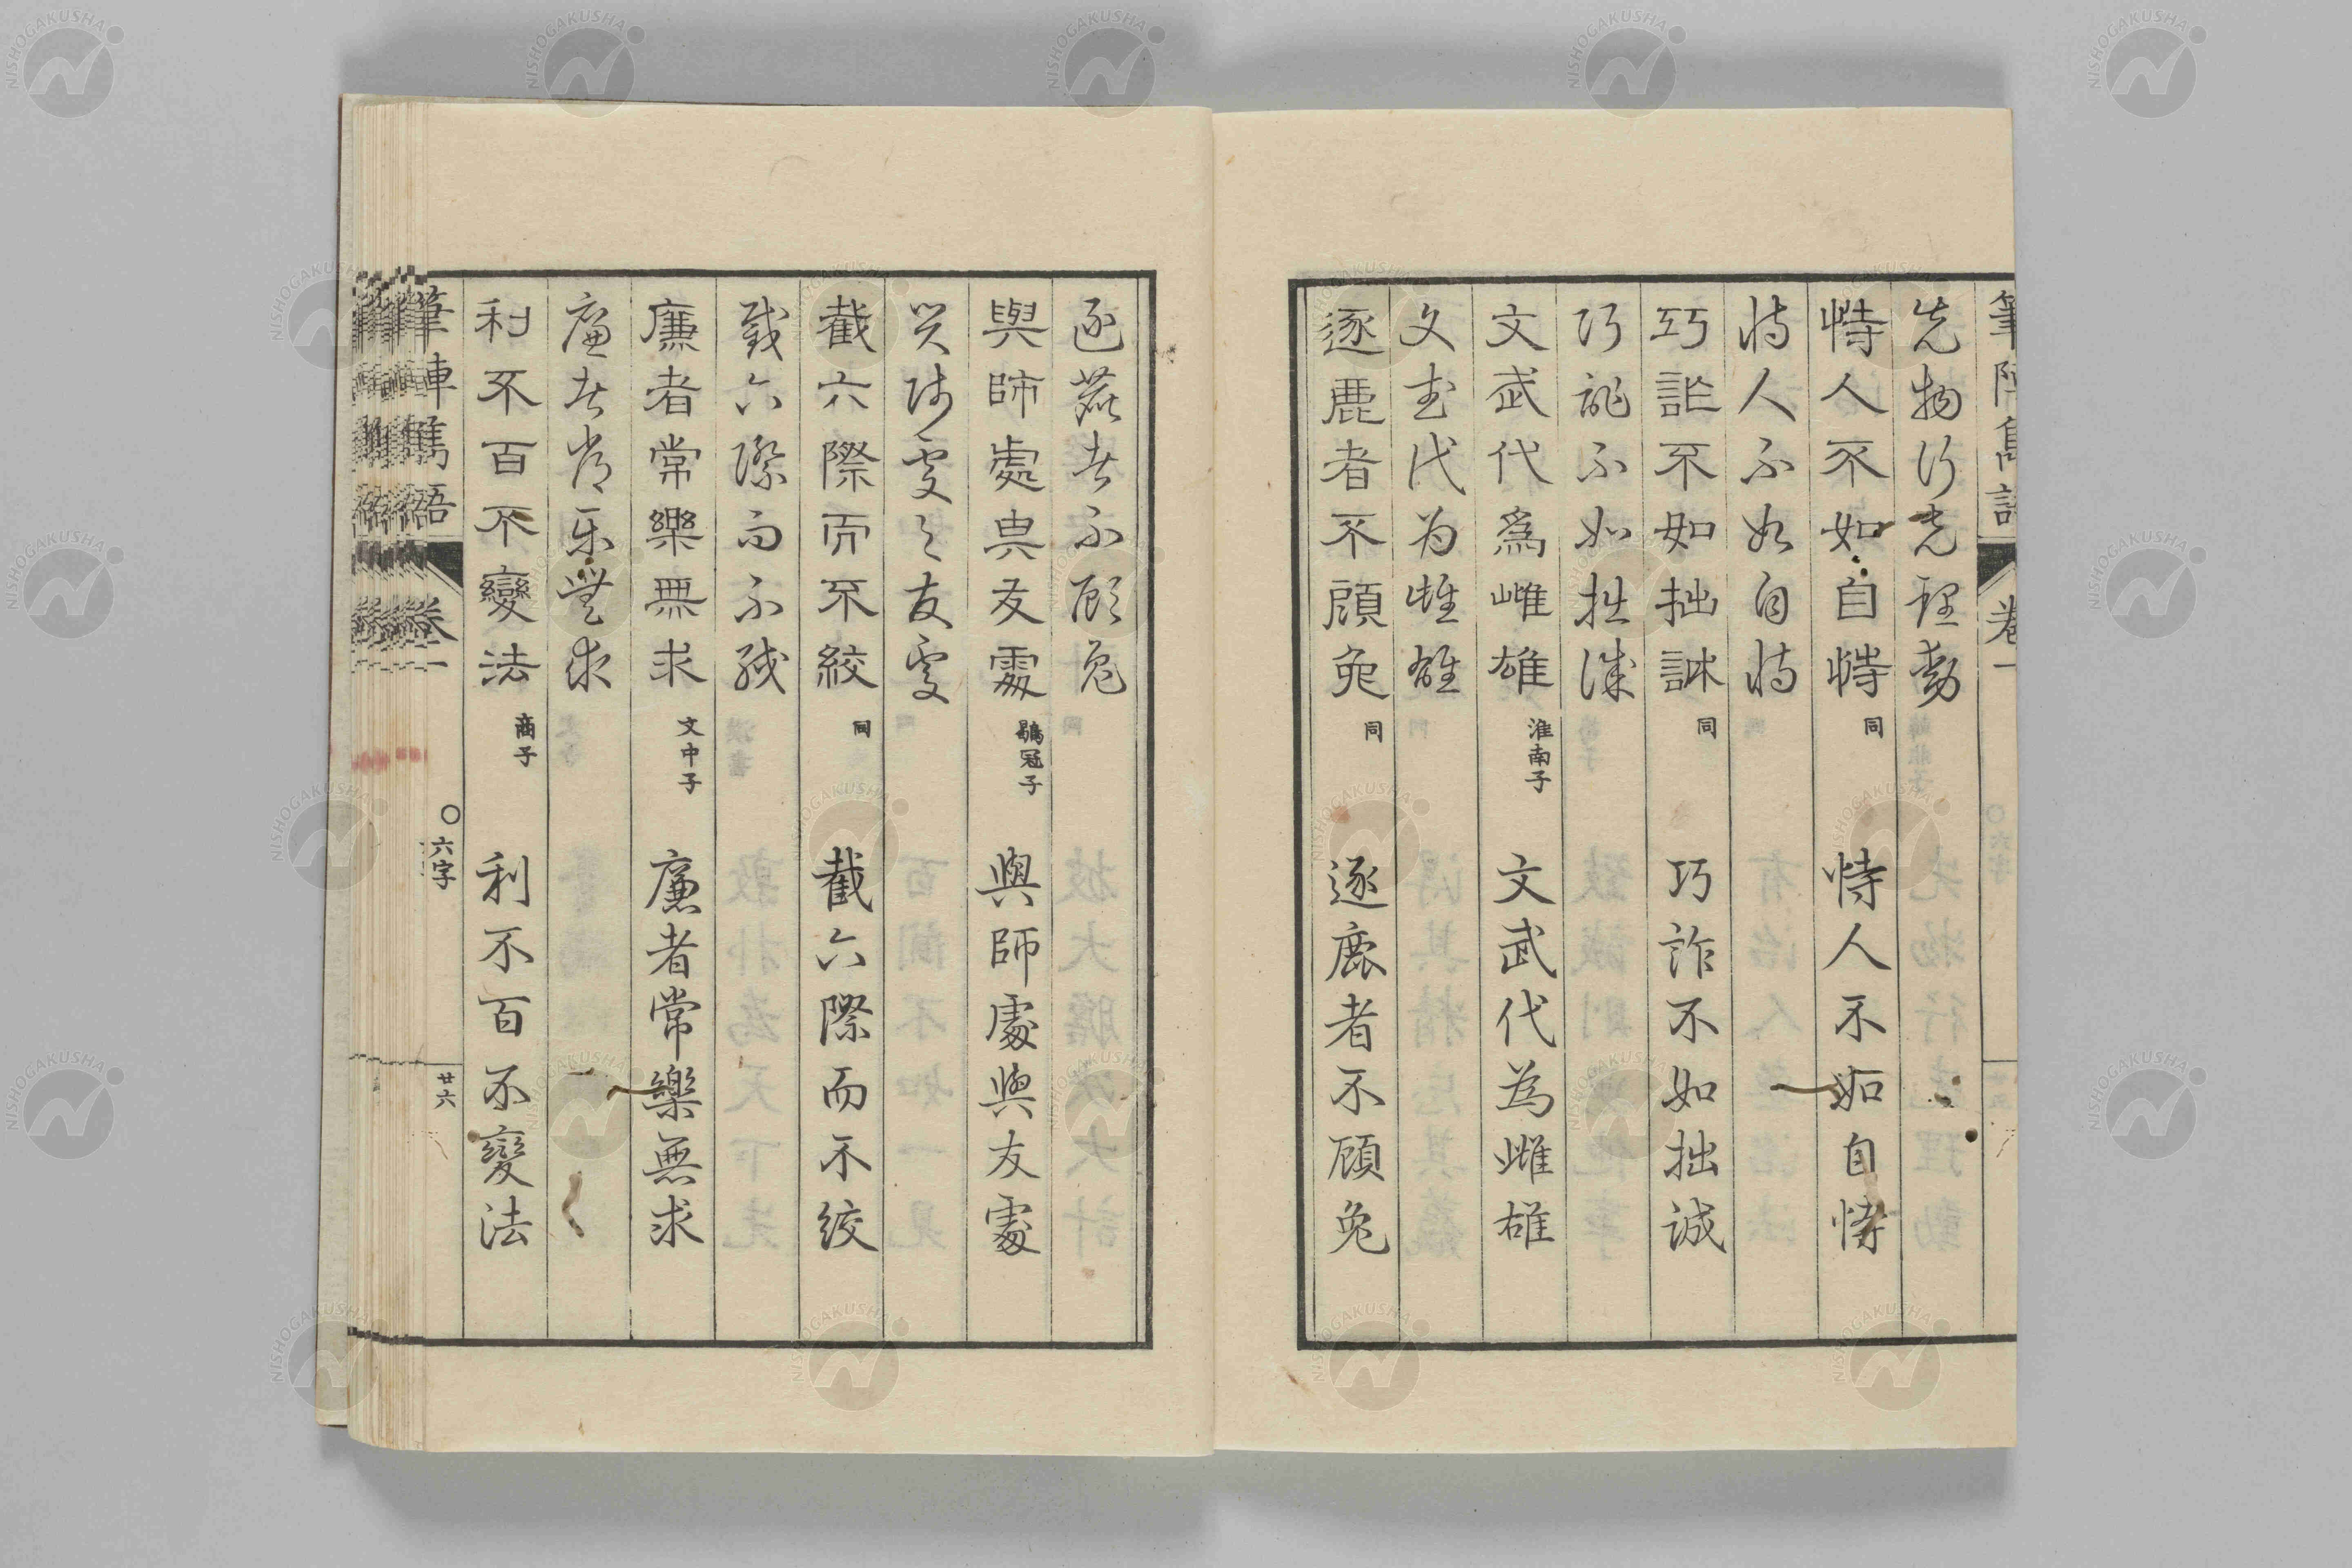 筆陣雋語 卷一
先物行先理動
恃人不如自恃 同 恃人不如自恃
恃人不如自恃
巧詐不如拙誠 同 巧詐不如拙誠
巧詐不如拙誠
文武代爲雌雄 淮南子 文武代為雌雄
文武代为雌雄
逐鹿者不顧兔 同 逐鹿者不顧兔
逐鹿者不顧兔
與師處與友處 鶡冠子 與師處與友處
與師處與友處
截六際而不絞 同 截六際而不絞
截六際而不絞
廉者常樂無求 文中子 廉者常樂無求
廉者常樂無求
利不百不變法 商子 利不百不變法
筆陣雋語 卷一 〇六字 廿六
NISHOGAKUSHA